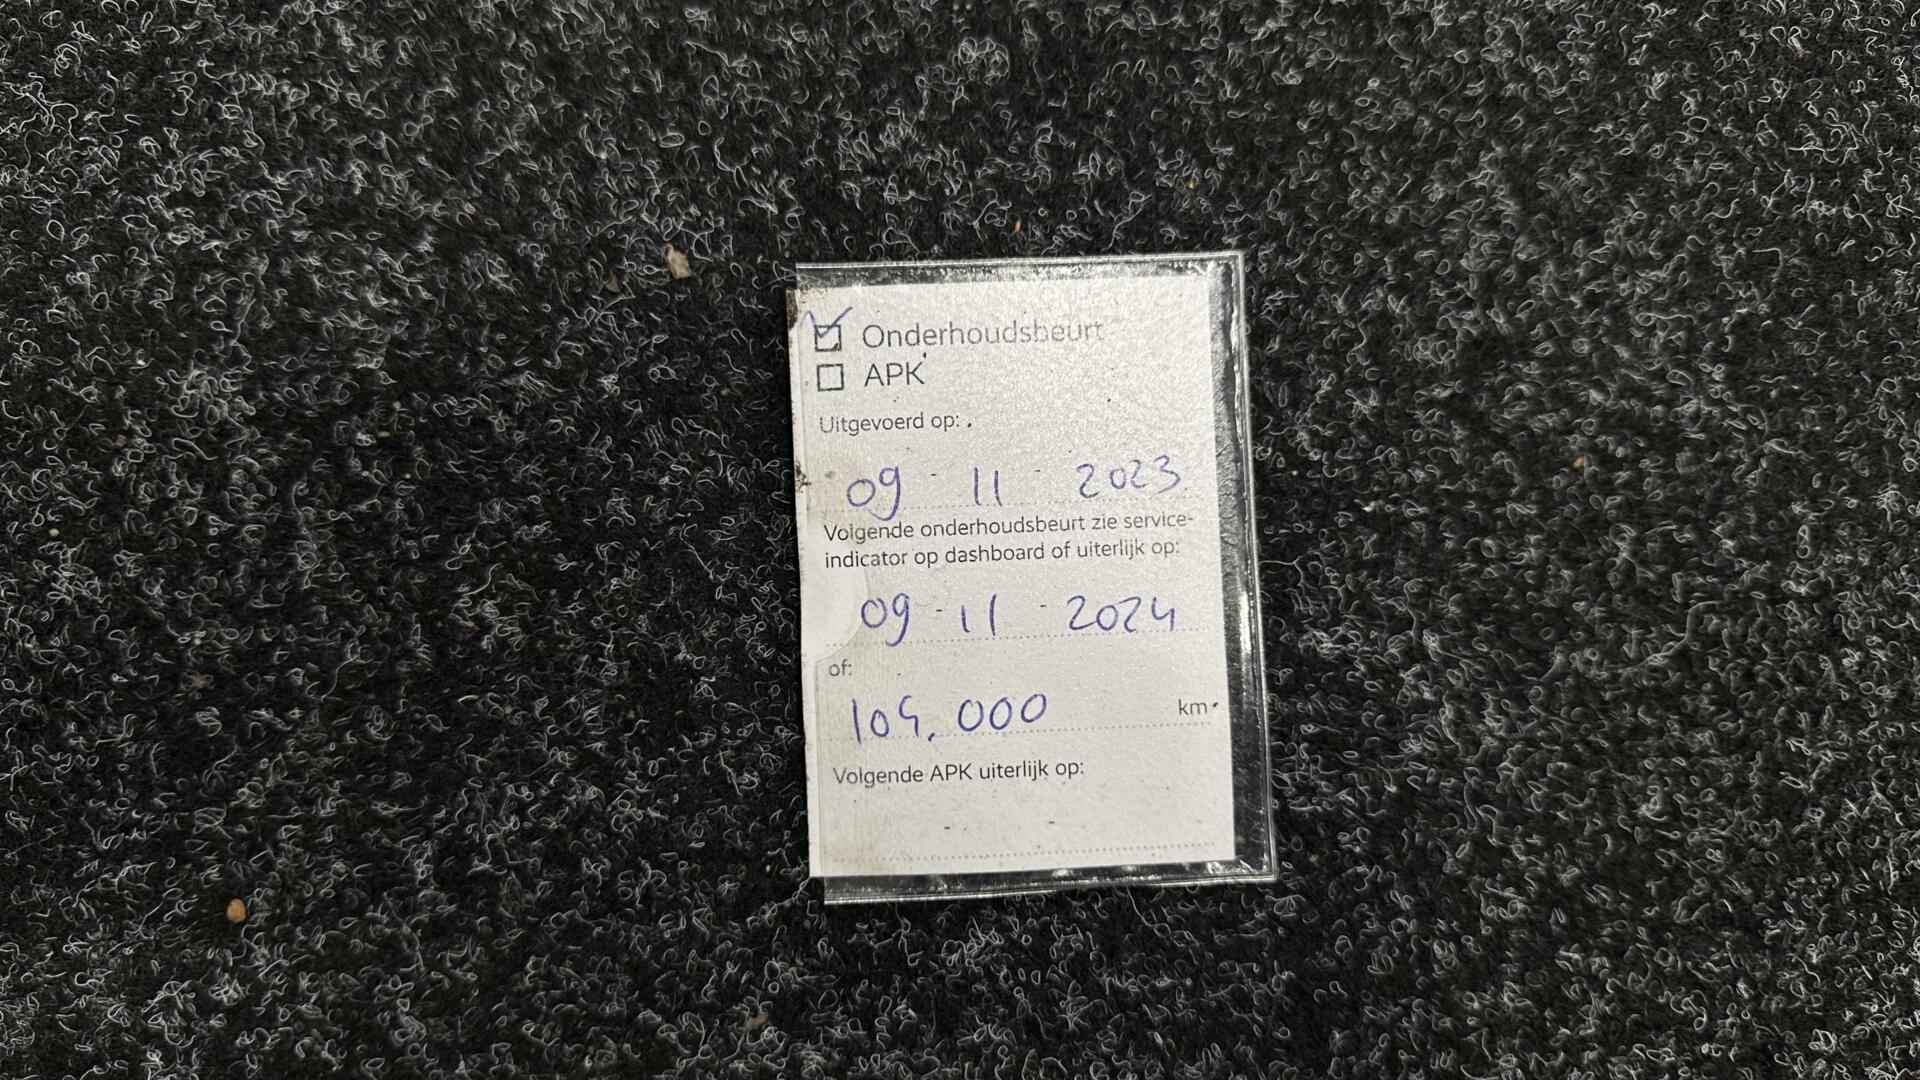 Onderhoudsbeurt
APK
Uitgevoerd op:
09 - 11 - 2023
Volgende onderhoudsbeurt zie service-
indicator op dashboard of uiterlijk op:
09 - 11 - 2024
of:
104.000 km
Volgende APK uiterlijk op: